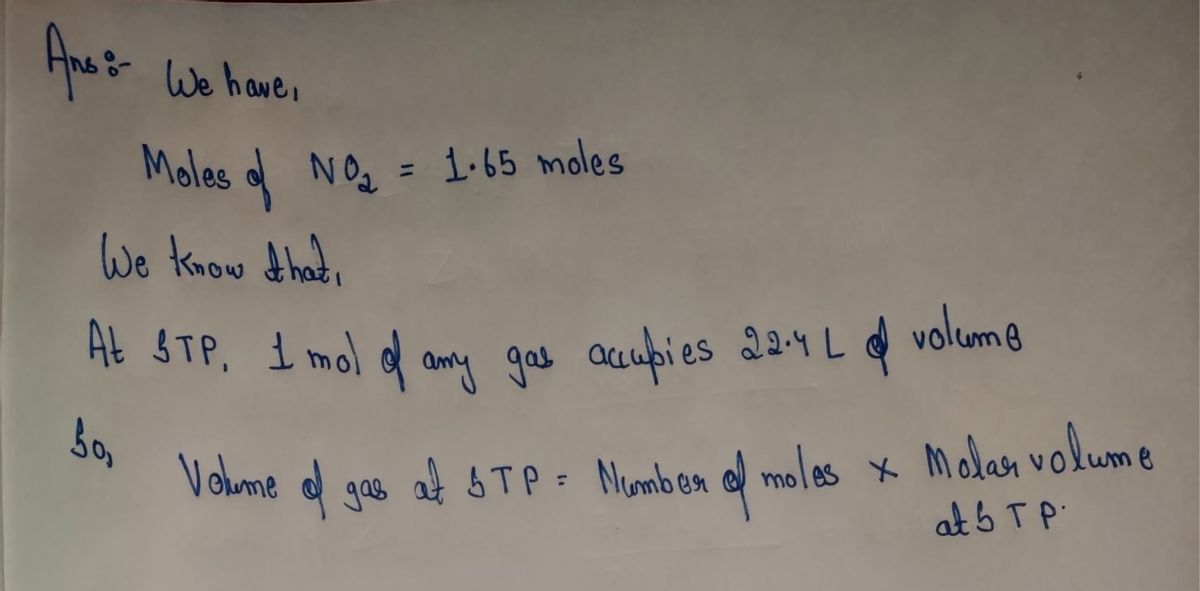 Ans:- We have,
Moles of NO₂ = 1.65 moles
We know that,
At STP, 1 mol of any gas occupies 22.4 L of volume
So,
Volume of gas at STP = Number of moles × Molar volume
at STP.